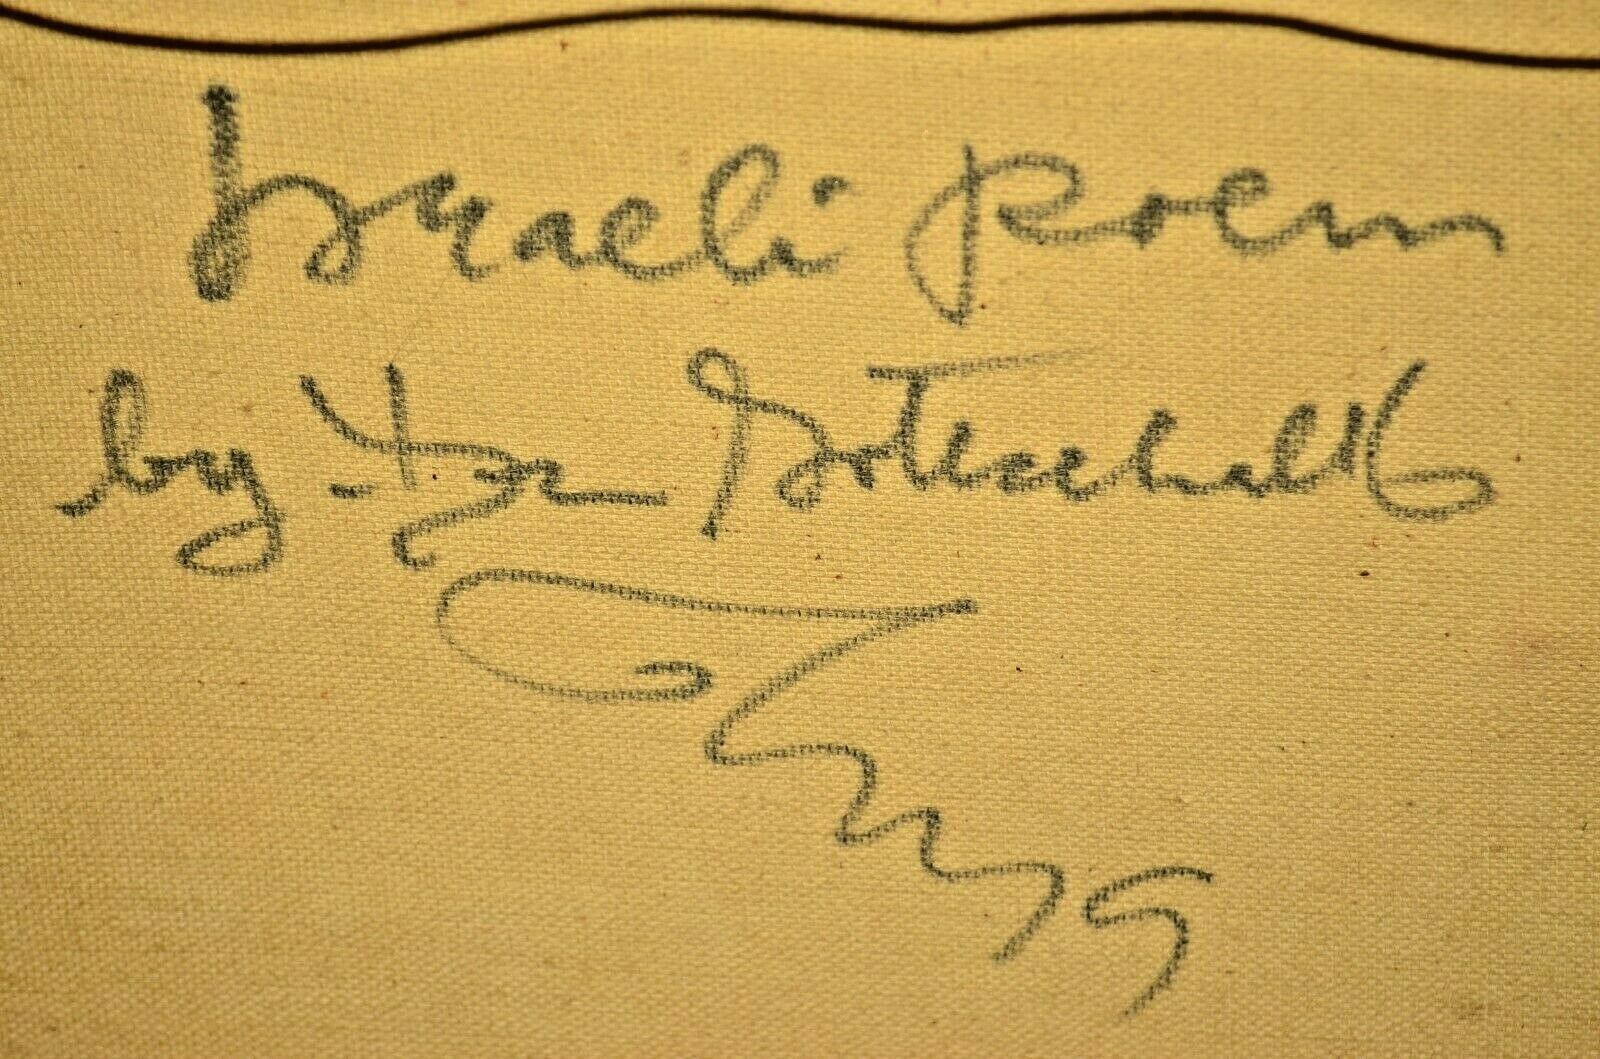 Israeli Poem
by Gottschalk